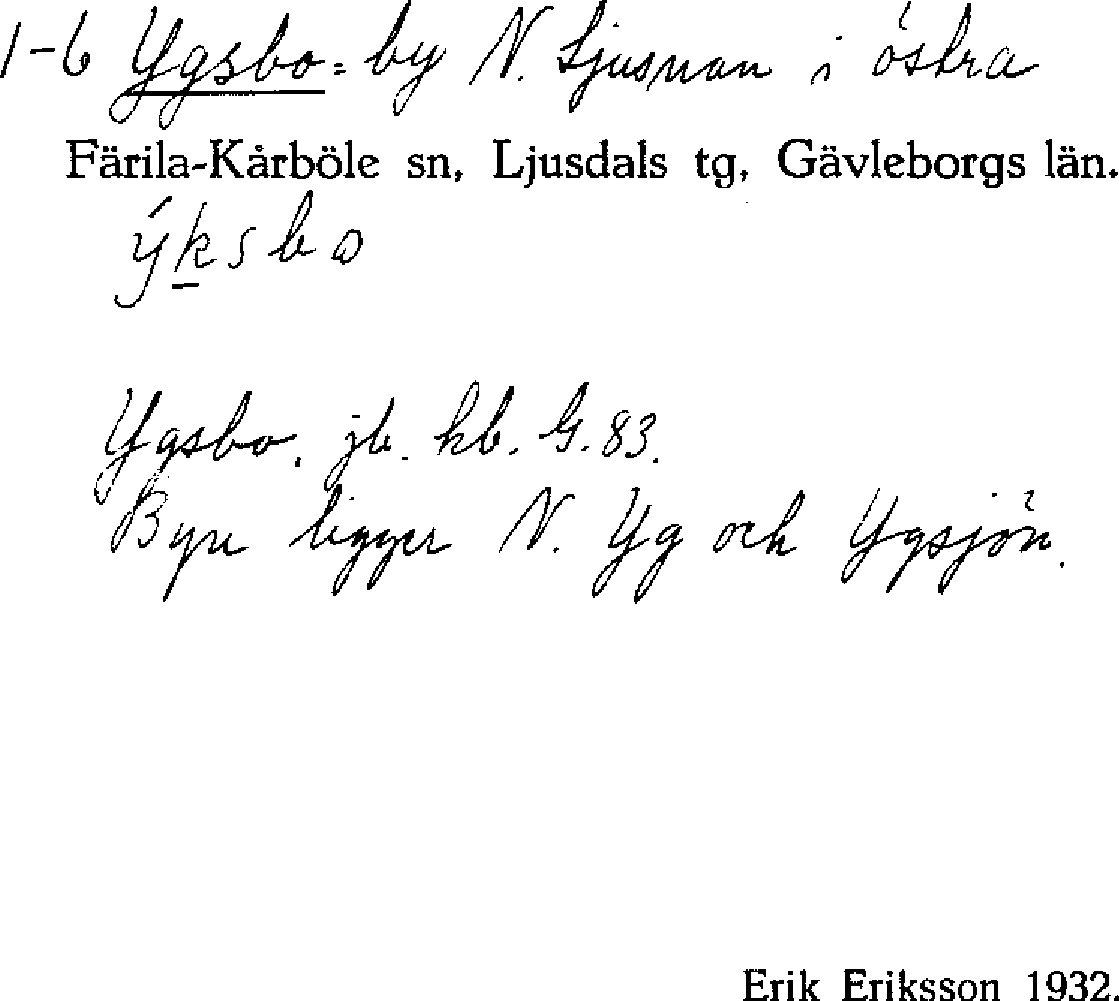 1-6 Ygsbo = by N. Ljusnan i östra
Färila-Kårböle sn, Ljusdals tg, Gävleborgs län.
ýksbo
Ygsbo. jb. kb. G. 83.
Byn ligger N. Yg och Ygsjön.
Erik Eriksson 1932.